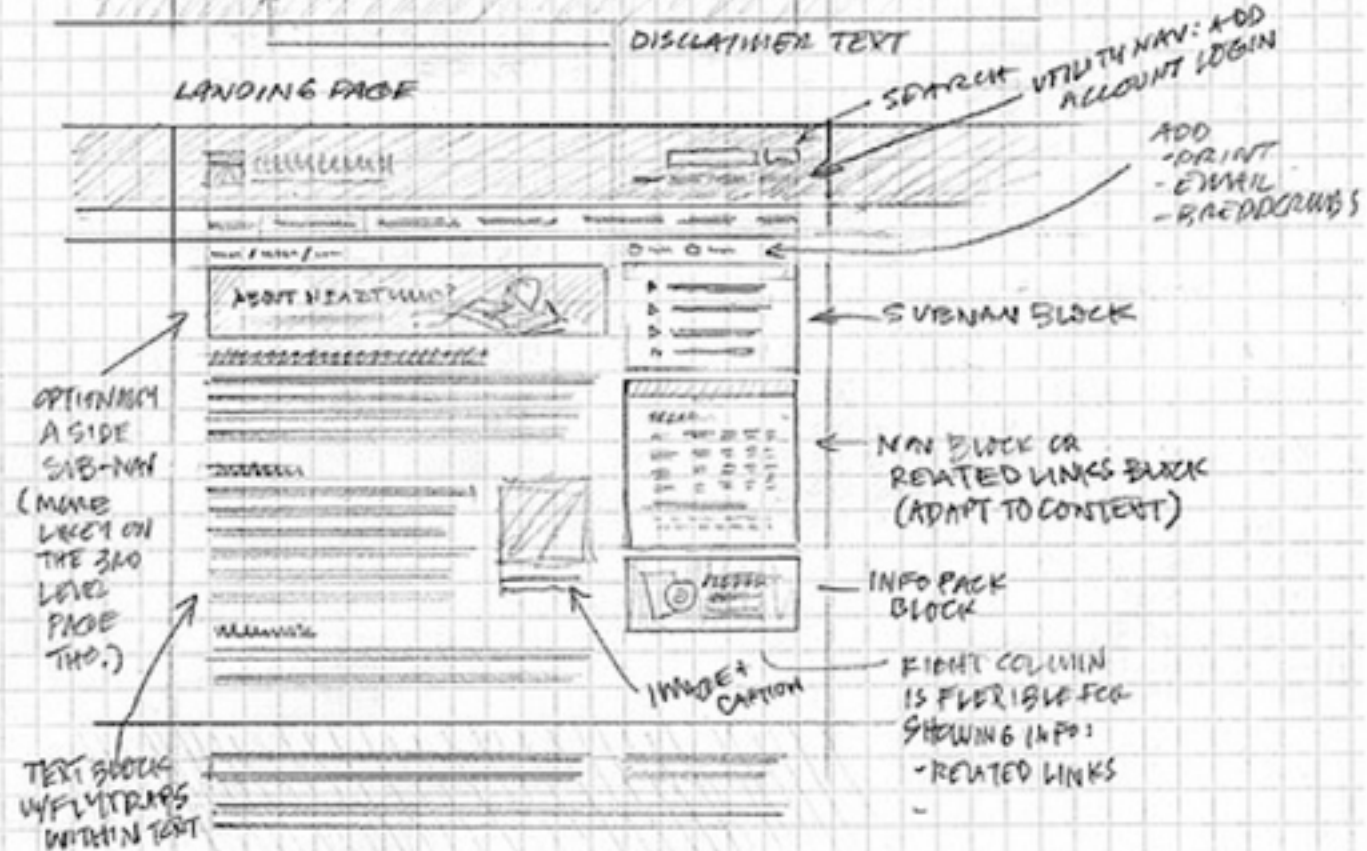 DISCLAIMER TEXT
LANDING PAGE
SEARCH
UTILITY NAV: ADD
ACCOUNT LOGIN
ADD
- PRINT
- EMAIL
- BREADCRUMBS
ABOUT
SUBNAV BLOCK
OPTIONALLY
A SIDE
SUB-NAV
(MORE
LIKELY ON
THE 3RD
LEVEL
PAGE
THO.)
NAV BLOCK OR
RELATED LINKS BLOCK
(ADAPT TO CONTENT)
INFO PACK
BLOCK
IMAGE +
CAPTION
RIGHT COLUMN
IS FLEXIBLE FOR
SHOWING INFO:
- RELATED LINKS
-
TEXT BLOCK
W/FLYTRAPS
WITHIN TEXT